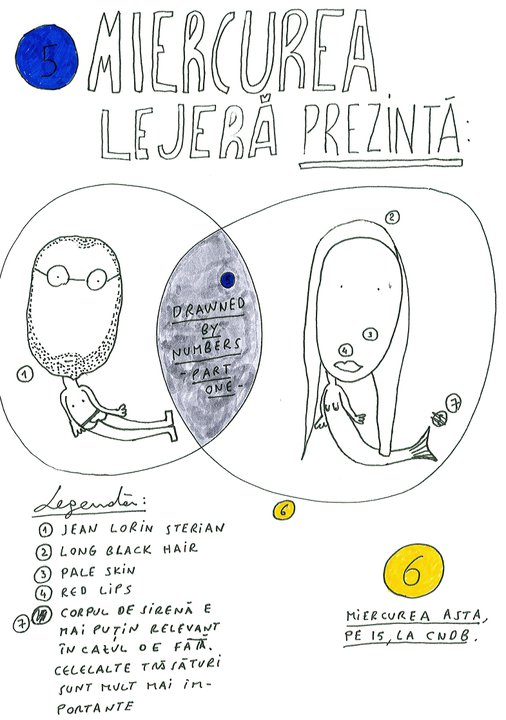 5 MIERCUREA
LEJERĂ PREZINTĂ:
2
5
DRAWNED
BY
NUMBERS
- PART
ONE -
3
4
1
7
6
Legendă:
1 JEAN LORIN STERIAN
2 LONG BLACK HAIR
3 PALE SKIN
4 RED LIPS
7 CORPUL DE SIRENĂ E
MAI PUȚIN RELEVANT
ÎN CAZUL DE FAȚĂ.
CELELALTE TRĂSĂTURI
SUNT MULT MAI IM-
PORTANTE
6
MIERCUREA ASTA,
PE 15, LA CNDB.